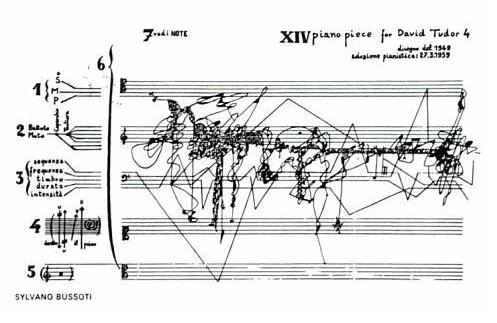 7 vedi NOTE
XIV piano piece for David Tudor 4
disegno del 1949
adozione pianistica: 27.3.1959
6
1
S
M
P
2
Battuto
Muto
3
sequenza
frequenza
timbro
durata
intensità
4
il piano
5
SYLVANO BUSSOTI